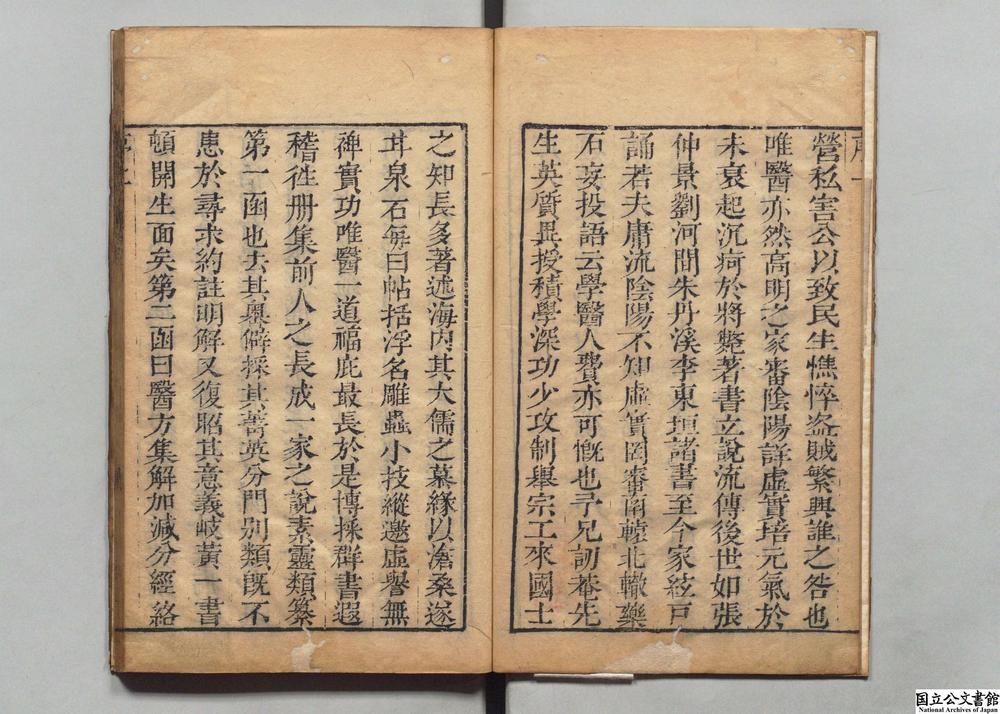 營私害公以致民生憔悴盜賊繁興誰之咎也
唯醫亦然高明之家審陰陽詳虛實培元氣於
未衰起沉疴於將斃著書立說流傳後世如張
仲景劉河間朱丹溪李東垣諸書至今家絃戶
誦若夫庸流陰陽不知虛實罔審南轅北轍藥
石妄投語云學醫人費亦可慨也予兄訒菴先
生英質異授積學深功少攻制舉宗工來國士
之知長多著述海內其大儒之慕緣以滄桑遂
耳泉石每曰帖括浮名雕蟲小技縱邀虛譽無
裨實功唯醫一道福庇最長於是博採群書遐
稽徃冊集前人之長成一家之說素靈類纂
第一函也去其奧僻採其菁英分門別類既不
患於尋求約註明解又復昭其意義岐黃一書
頓開生面矣第二函曰醫方集解加減分經絡
国立公文書館
National Archives of Japan